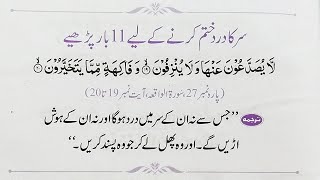 سر کا درد ختم کرنے کے لیے 11 بار پڑھیے
لَا يُصَدَّعُوْنَ عَنْهَا وَلَا يُنْزِفُوْنَ ۙ وَفَاكِهَةٍ مِّمَّا يَتَخَيَّرُوْنَ ۙ
(پارہ نمبر 27، سورۃ الواقعہ، آیت نمبر 19 تا 20)
ترجمہ ”جس سے نہ ان کے سر میں درد ہوگا اور نہ ان کے ہوش
اڑیں گے۔ اور وہ پھل لے کر جو وہ پسند کریں۔“